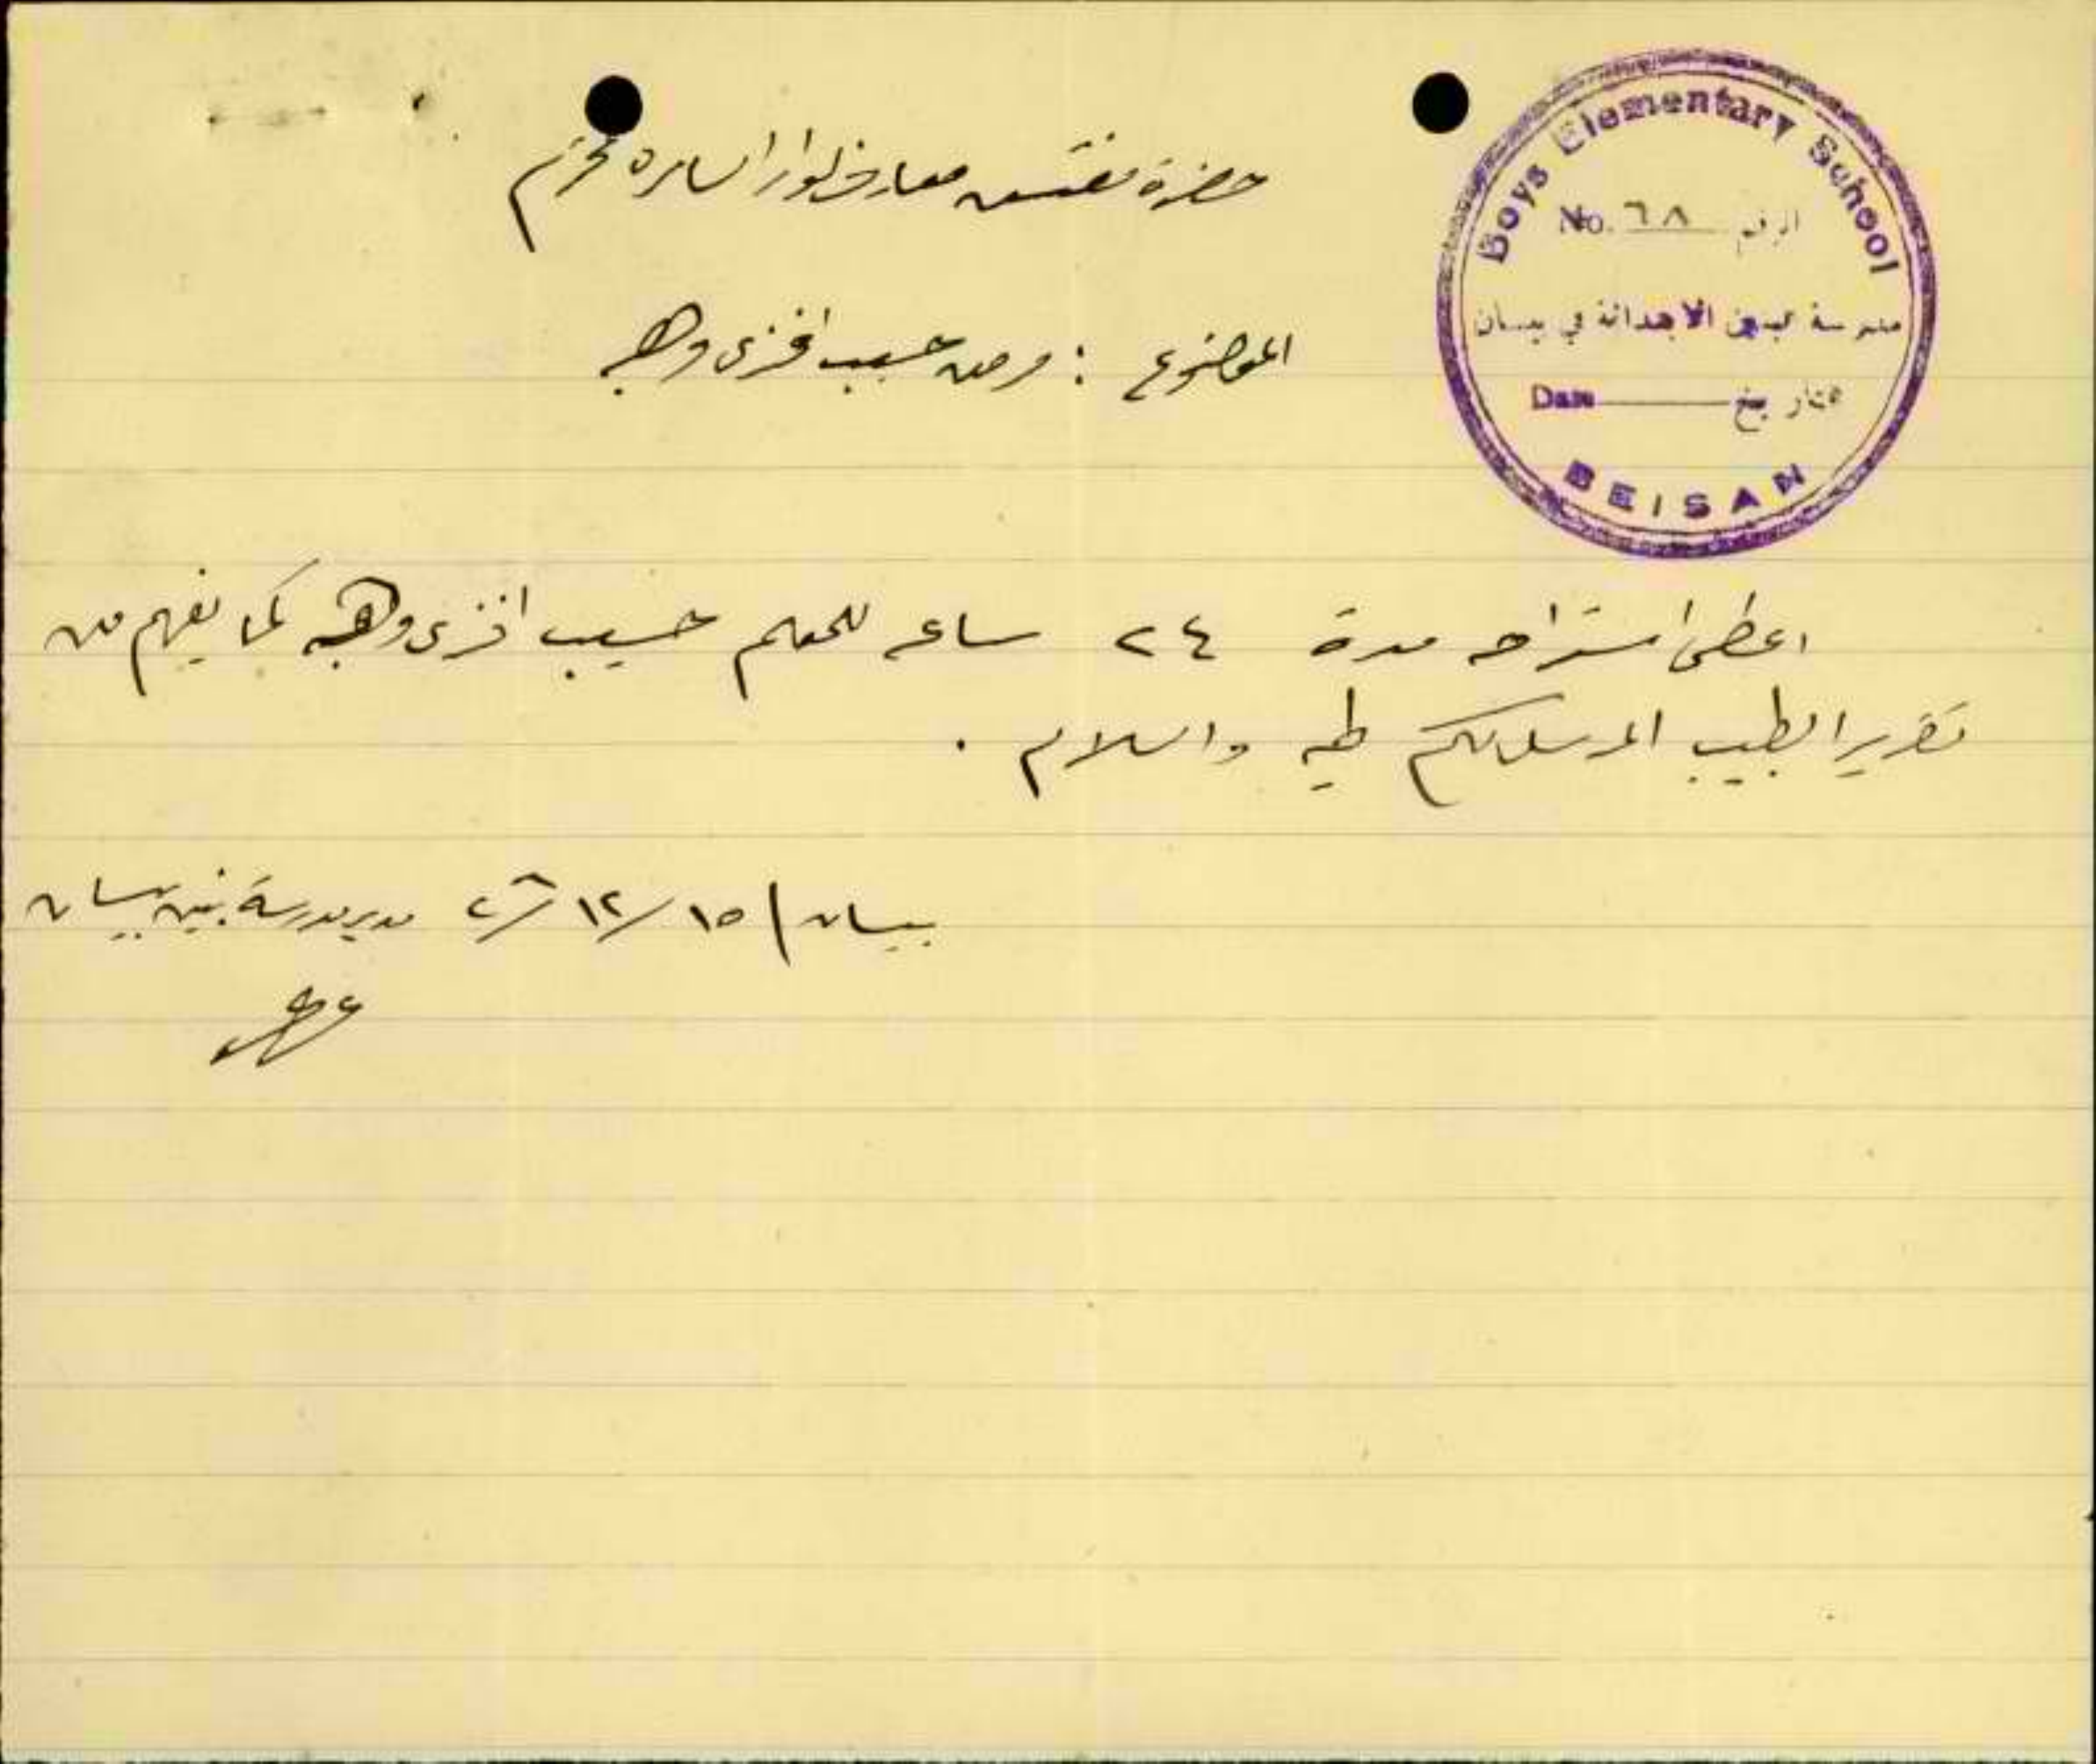 Boys Elementary School
No. ٦٨ الرقم
مدرسة البنين الابتدائية في بيسان
Date التاريخ
BEISAN
حضرة مفتش معارف لواء السامره المحترم
الموضوع : مرض حسيب افندي وهبه
اعطي استراحه مدة ٢٤ ساعه للمعلم حسيب افندي وهبه كما يفهم من
تقرير الطبيب المرسل لكم طيه والسلام .
بيسان / ١٥/ ١٢/ ٢٨ مدير مدرسة بنين بيسان